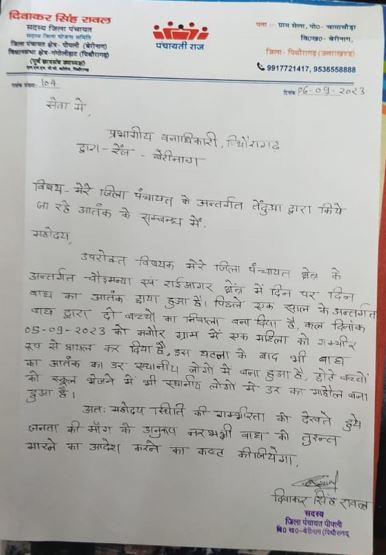 दिवाकर सिंह रावल
सदस्य जिला पंचायत
सदस्य जिला योजना समिति
जिला पंचायत क्षेत्र- पीपली (बेरीनाग)
विधानसभा क्षेत्र-गंगोलीहाट (पिथौरागढ़)
(पूर्व छात्रसंघ उपाध्यक्ष)
पंचायती राज
पता :- ग्राम सेला, पो०-
वि०ख० - बेरीनाग,
जिला- पिथौरागढ़ (उत्तराखण्ड)
9917721417, 9536558888
पत्रांक संख्या: 104
दिनांक 06-09-2023
सेवा में,
प्रभागीय वनाधिकारी, पिथौरागढ़
द्वारा - रेंज - बेरीनाग
विषय- मेरे जिला पंचायत के अन्तर्गत तेंदुआ द्वारा किये
जा रहे आतंक के सम्बन्ध में.
महोदय,
उपरोक्त विषयक मेरे जिला पंचायत क्षेत्र के
अन्तर्गत एवं राईआगर क्षेत्र में दिन पर दिन
बाघ का आतंक छाया हुआ है। पिछले एक साल के अन्तर्गत
बाघ द्वारा दो बच्चों का निवाला बना दिया है, कल दिनांक
05-09-2023 को ग्राम में एक महिला को गम्भीर
रूप से घायल कर दिया है, इस घटना के बाद भी बाघ
का आतंक का डर स्थानीय लोगों में बना हुआ है, छोटे बच्चों
को स्कूल भेजने में भी स्थानीय लोगों में डर का माहौल बना
हुआ है।
अतः महोदय स्थिति की गम्भीरता को देखते हुये
जनता की माँग के अनुरूप नरभक्षी बाघ को तुरन्त
मारने का आदेश करने का कष्ट कीजियेगा.
दिवाकर सिंह रावल
सदस्य
जिला पंचायत पीपली
वि० ख०-बेरीनाग (पिथौरागढ़)